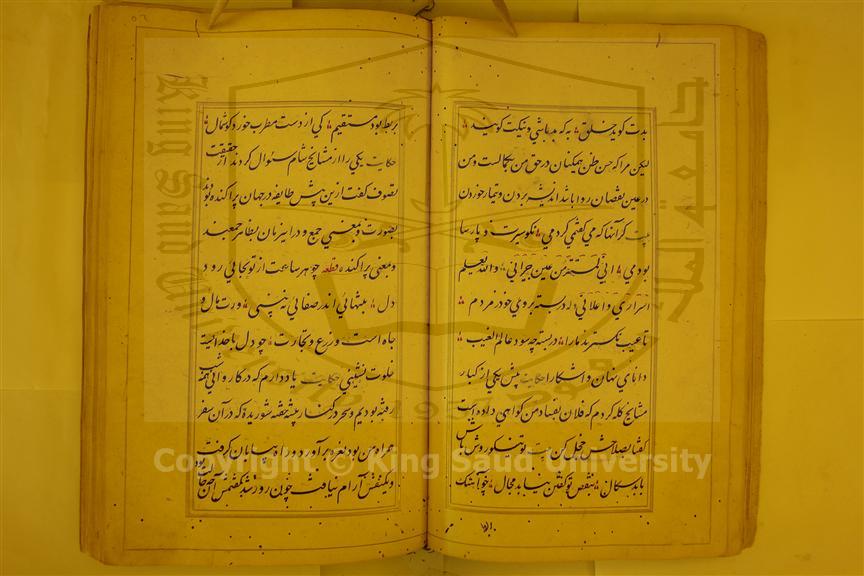 بدت گوید خلق ؞ به که بد باشی و نیکت گویند ؞
لیکن مرا که حسن ظن همکنان در حق من بکمالست و من
در عین نقصان روا باشد اندیشه بردن و تیمار خوردن
بیت گر آنها که می گفتمی کردمی ؞ نکو سیرت و پارسا
بودمی ؞ انی لمستتر من عین جیرانی ؞ و الله یعلم
اسراری و اعلانی ؞ در بسته بروی خود ز مردم ؞
تا عیب نگسترند ما را ؞ در بسته چه سود عالم الغیب ؞
دانای نهان و اشکارا حکایت پیش یکی از کبار
مشایخ گله کردم که فلان بفساد من گواهی داده است
گفتا بصلاحش خجل کن بیت تو نیکو روش باش
تا بد سگال ؞ بنقص تو گفتن نیابد مجال ؞ چو آهنگ
بربط بود مستقیم ؞ کی از دست مطرب خورد گوشمال ؞
حکایت یکی را از مشایخ شام سئوال کردند از حقیقت
تصوف گفت ازین پیش طایفه در جهان پراکنده بودند
بصورت و بمعنی جمع و درین زمان بظاهر جمعند
و بمعنی پراکنده قطعه چو هر ساعت از تو بجائی رود
دل ؞ بتنهائی اندر صفائی نه بینی ؞ ورت مال و
جاه است و زرع و تجارت ؞ چو دل با خدائیست
خلوت نشینی حکایت یاد دارم که در کاروانی همه شب
رفته بودیم و سحر در کنار بیشه خفته شوریده که در آن سفر
همراه من بود نعره برآورد و راه بیابان گرفت
و یکنفس آرام نیافت چون روز شد گفتمش آن چه حالت بود
Copyright © King Saud University
King Saud University
جامعة الملك سعود
1957